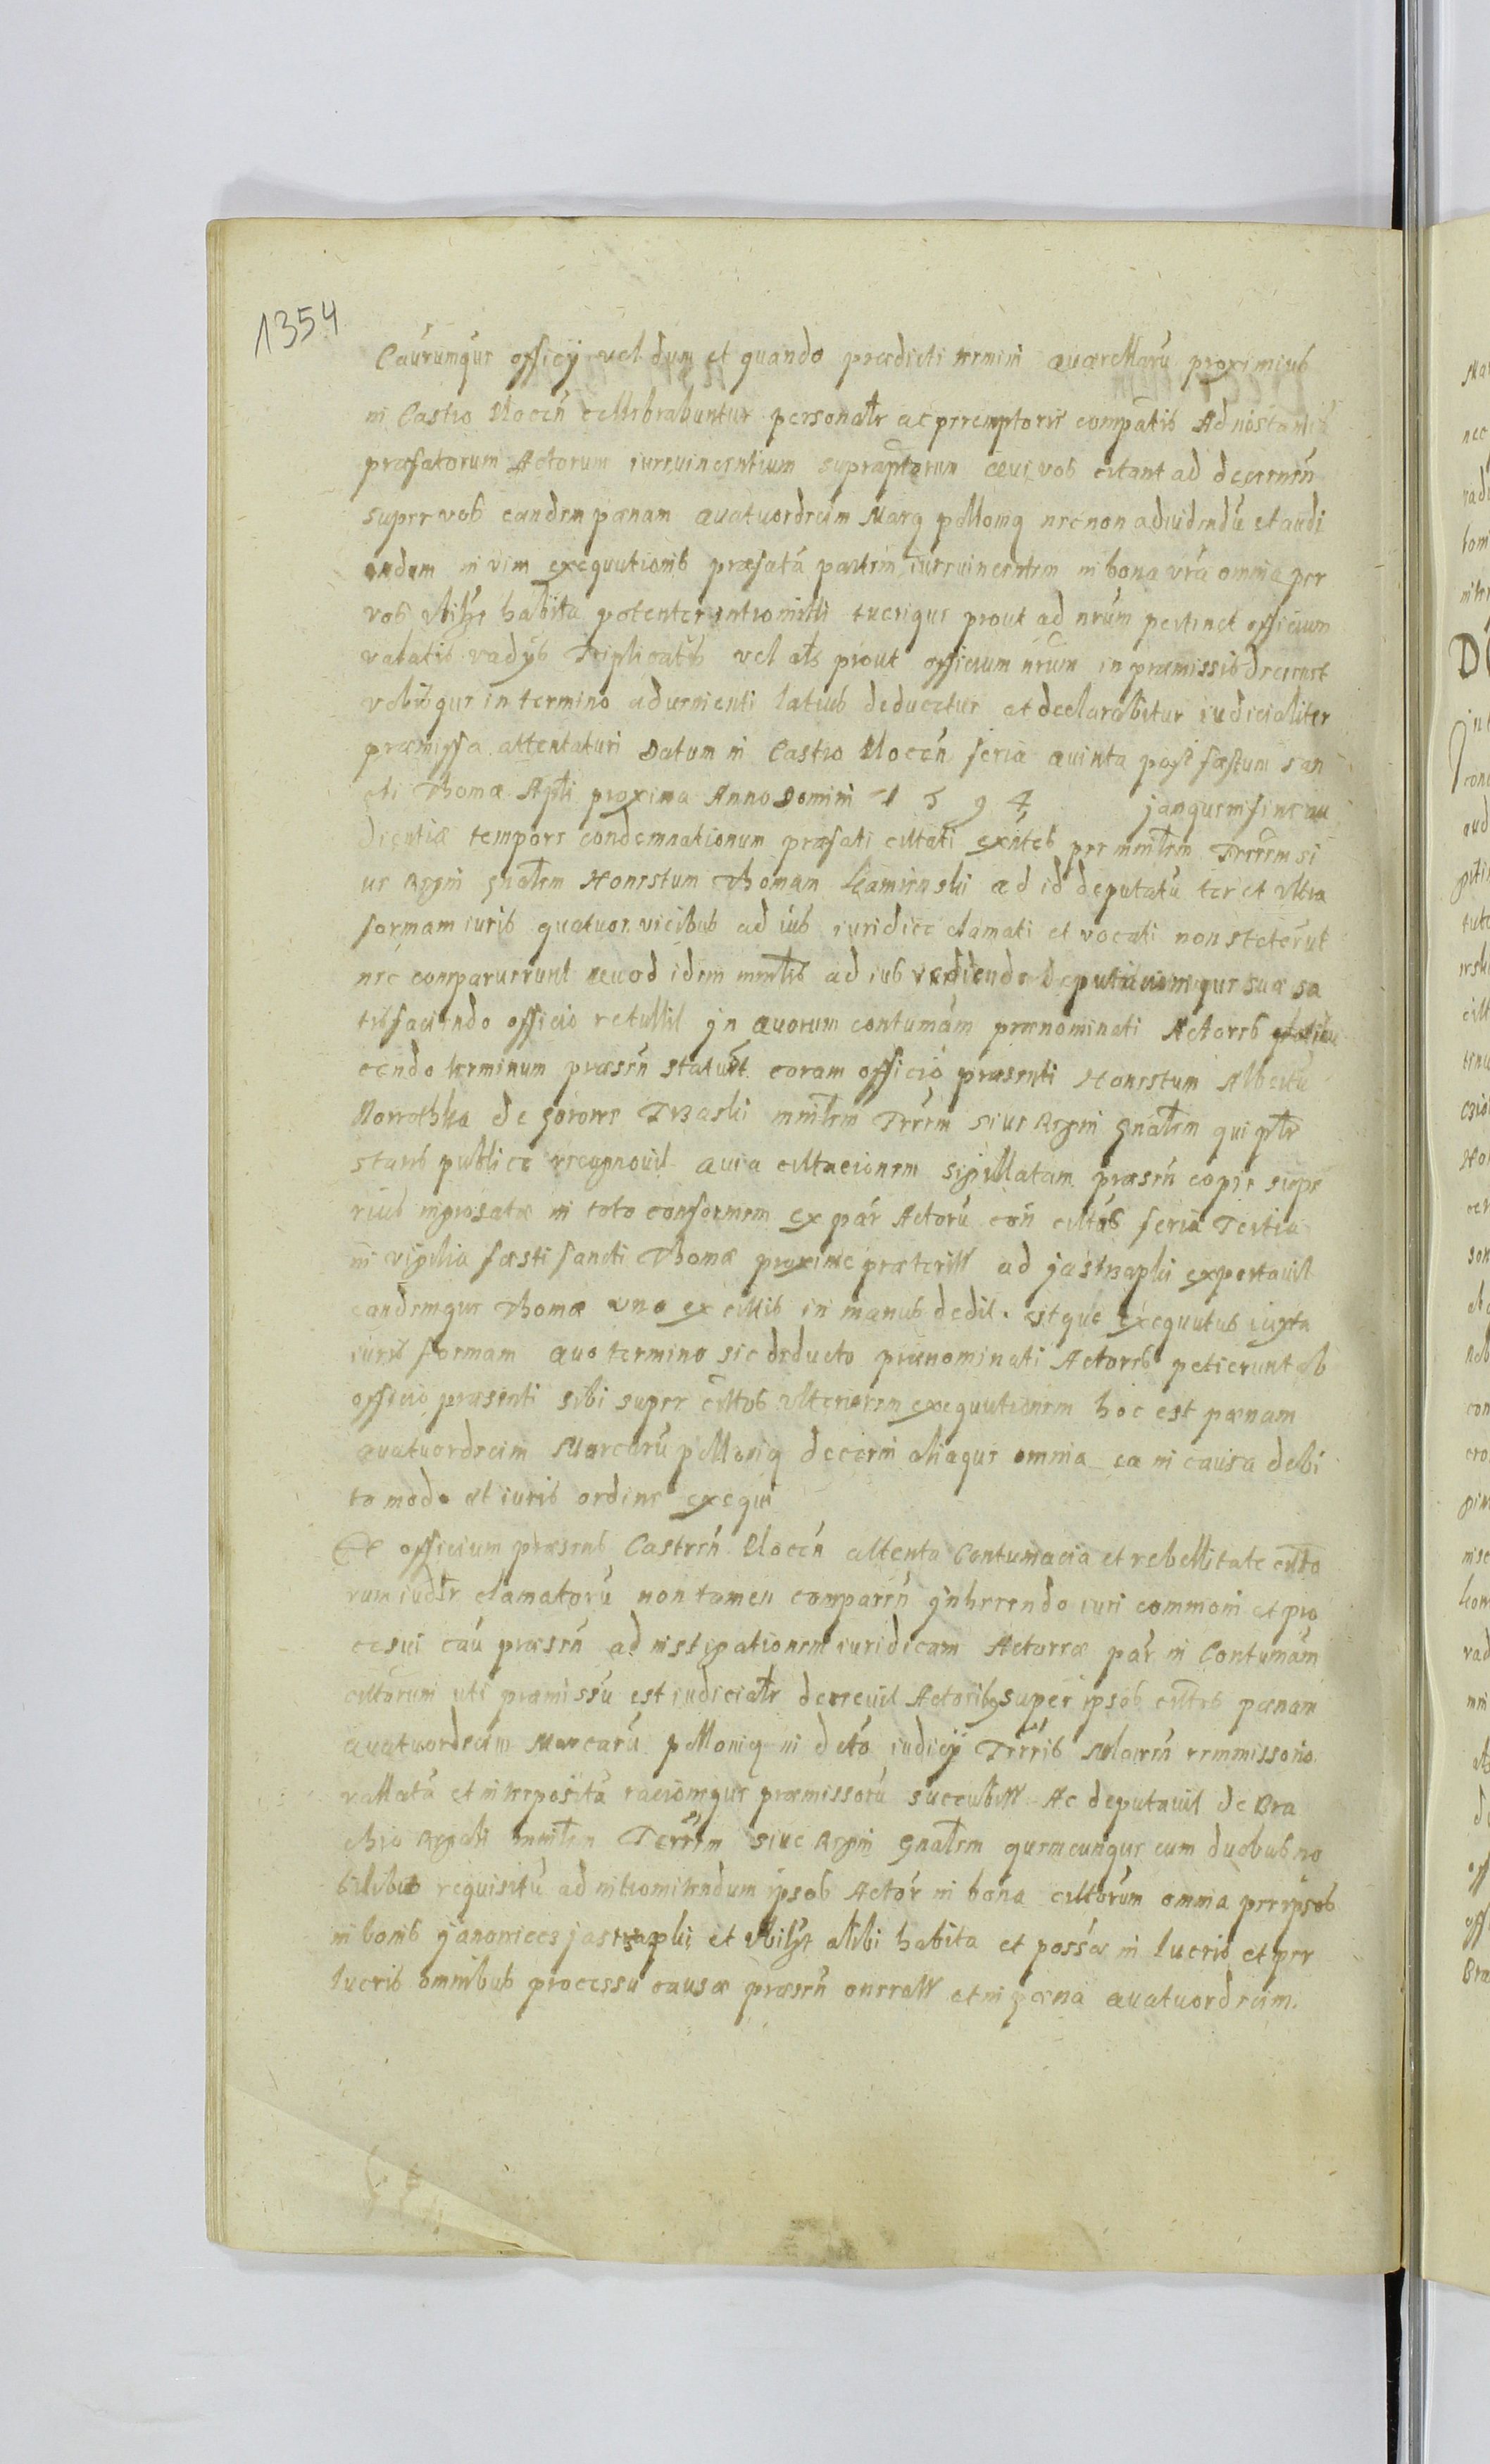 1354
Caūrumque officij vel dum et quando prædicti termini quærellarū proximius
in Castro Plocēn cellebrabuntur personalr ac peremptorie compatis Ad instantiā
præfatorum Actorum iurevincentium supraptorum qui vos citant ad decernēn
super vos eandem pænam quatuordecim Marq pollonicq necnon ad videndū et audi
endum in vim exequutionis præfatā partem iurevincentem in bona vrā omnia per
vos vbilȝ habita potenter intromitti tuerique prout ad nrūm pertinet officium
vallatis vadijs Triplicatis vel als prout officium nrūm in præmissis decernet
vobisque in termino aduenienti latius deducetur et declarabitur iudicialiter
præmissa attentaturi Datum in Castro Plocēn feria quinta post fæstum san
cti Thomæ Apli proxima Anno Domini 1 5 9 4 jamque in fine au
dientiæ tempore condemnationum præfati citati exntes per mintlem Trrēm si
ue Regni gnalem Honestum Thoman Kamienski ad id deputatū ter et vltra
formam iuris quatuor vicibus ad ius iuridice clamati et vocati non steterūt
nec comparuerunt quod idem mintlis ad ius reddendo deputationique suæ sa
tisfaciendo officio retullit jn quorum contumām prænominati Actores
cendo terminum præsēn statuūt coram officio præsenti Honestum Albertū
de Trzaski mintlem Trrēm siue Regni gnalem qui pntr
stans publice recognouit quia cittacionem sigillatam præsēn copie supe
rius ingrosatæ in toto conformem ex pār Actorū con cittōs feria Tertia
in vigilia fæsti sancti Thomæ proxime præteritt ad jastrzapki exportauit
eandemque Thomæ vno ex cittis in manus dedit. estque exequutus iuxta
iuris formam quo termino sic deducto prænominati Actores petierunt ab
officio præsenti sibi super cittos vlteriorem exequutionem hoc est pænam
quatuordecim Marcarū pollonicq decerni aliaque omnia ea in causa debi
to modo et iuris ordine exequi
Et officium præsens Castrēn Plocēn attenta Contumacia et rebellitate citto
rum iudlr clamatorū non tamen comparēn jnherendo iuri communi et pro
cesui cāu præsēn ad instigationem iuridicam Actorreæ pār in Contumām
cittorum uti præmissū est iudicialr decreuit Actoribq super ipsos cittos pænam
quatuordecim Marcarū pollonicq in dctō iudicij Trrris remmissorio
vallatā et interpositā racioneque præmissorū succubitt Ac deputauit de Bra
chio Regali mintlem Terrēm siue Regni gnalem quemcunque cum duobus no
bilibus requisitū ad intromittendum ipsos Actōr in bona cittorum omnia per ipsos
in bonis janowiecz jastrzapki et vbilȝ alibi habita et possēs in lucris et per
lucris omnibus processu causæ præsēn oneratt et in pæna quatuordecim.